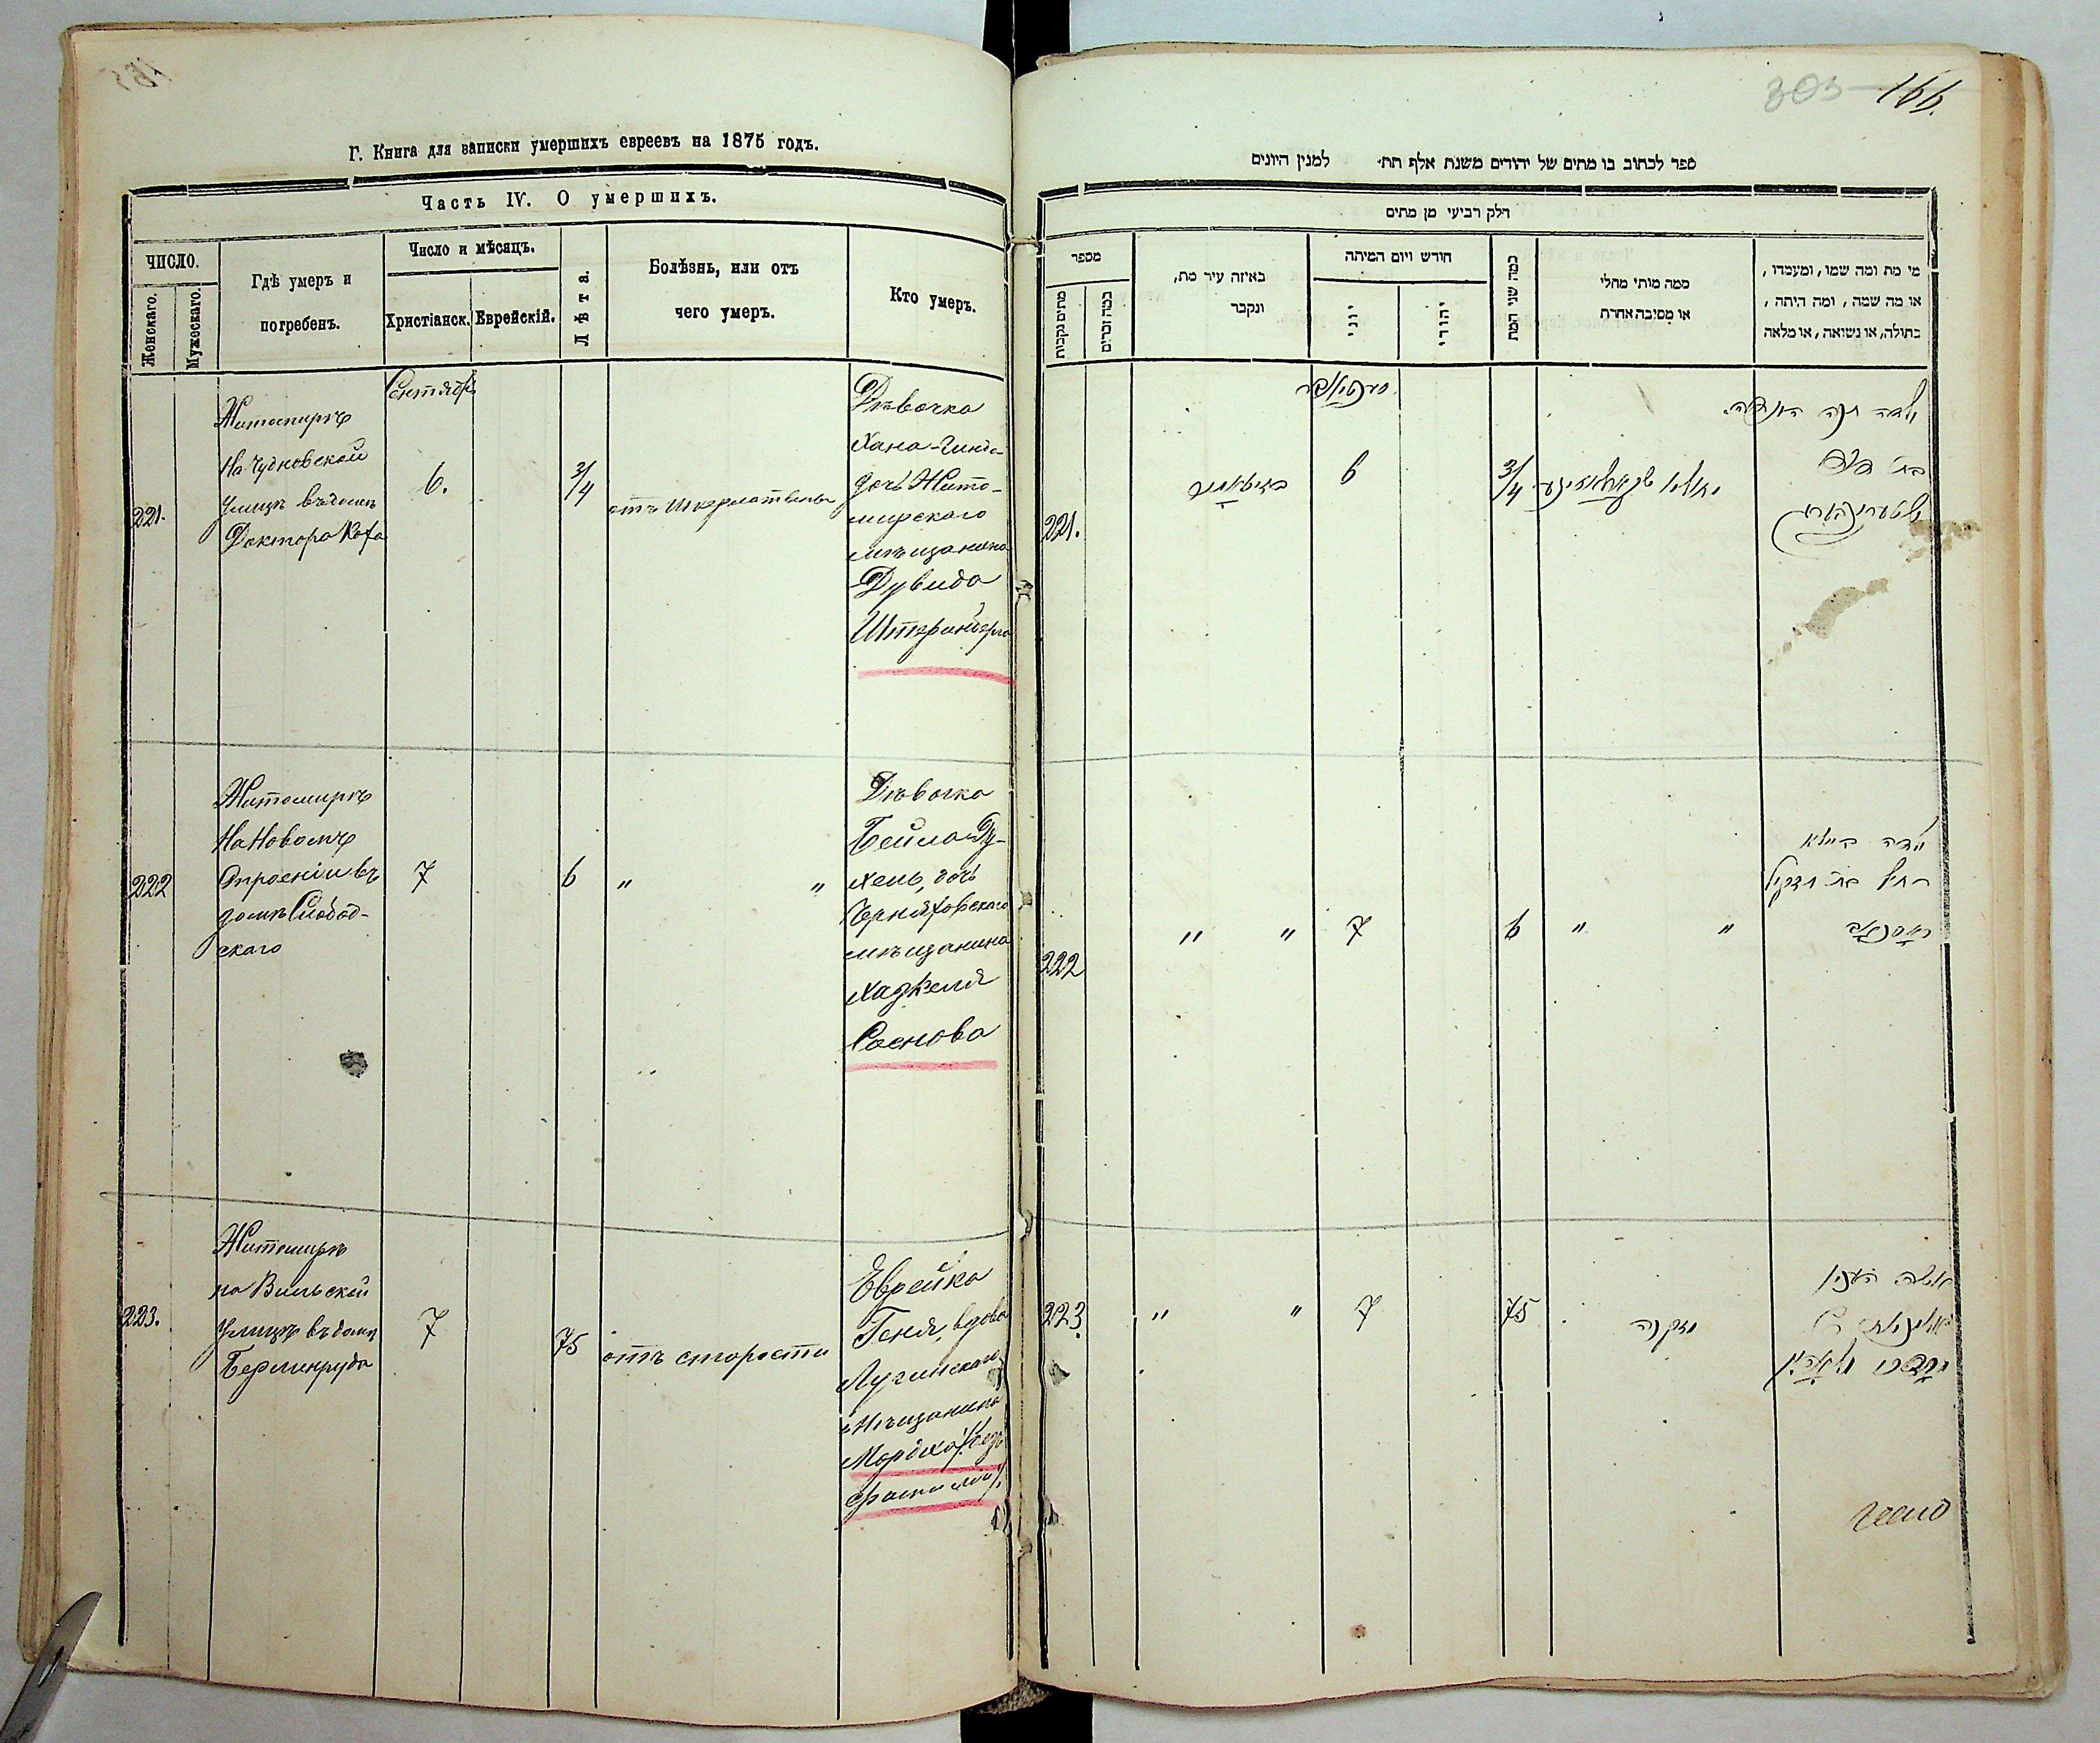 Г. Книга для записки умершихъ евреевъ на 1875 годъ.
Часть IV. О умершихъ.
ЧИСЛО.
Женскаго.
Мужескаго.
Гдѣ умеръ и
погребенъ.
Число и мѣсяцъ.
Христіанск.
Еврейскій.
Лѣта.
Болѣзнь, или отъ
чего умеръ.
Кто умеръ.
Сентябрь
221.
Житомирѣ
На Чудновской
улицѣ въ домѣ
Доктора
6.
3/4
отъ
Дѣвочка
Хана-Гинда
дочь Жито-
мирскаго
мѣщанина
Дувида
Штеренберга
222
Житомирѣ
На Новомъ
Строеніи въ
домѣ Слобод-
скаго
7
6
" "
Дѣвочка
Бейла-Ру-
хель, дочь
Черняховскаго
мѣщанина
Хацкеля
Соснова
223.
Житомирѣ
на Вильской
улицѣ въ домѣ
7
75
отъ старости
Еврейка
Геня, вдова
Лугинскаго
мѣщанина
303
166.
ספר לכתוב בו מתים של יהודים משנת אלף תת׳ למנין היונים
חלק רביעי מן מתים
מספר
מתים נקבות
כמה זכרים
באיזה עיר מת,
ונקבר
חודש ויום המיתה
יוני
יהודי
כמה שני המת
ממה מותו מחלי
או מסיבה אחרת
מי מת ומה שמו, ומעמדו,
או מה שמה, ומה היתה,
בתולה, או נשואה, או מלאה
221.
6
3/4
ילדה חנה הינדה
שטערינבערג
222
" "
7
6
" "
ילדה ביילא
רחל בת חצקיל
סאסנאוו
223.
" "
7
75
מזקנה
אשה העניא